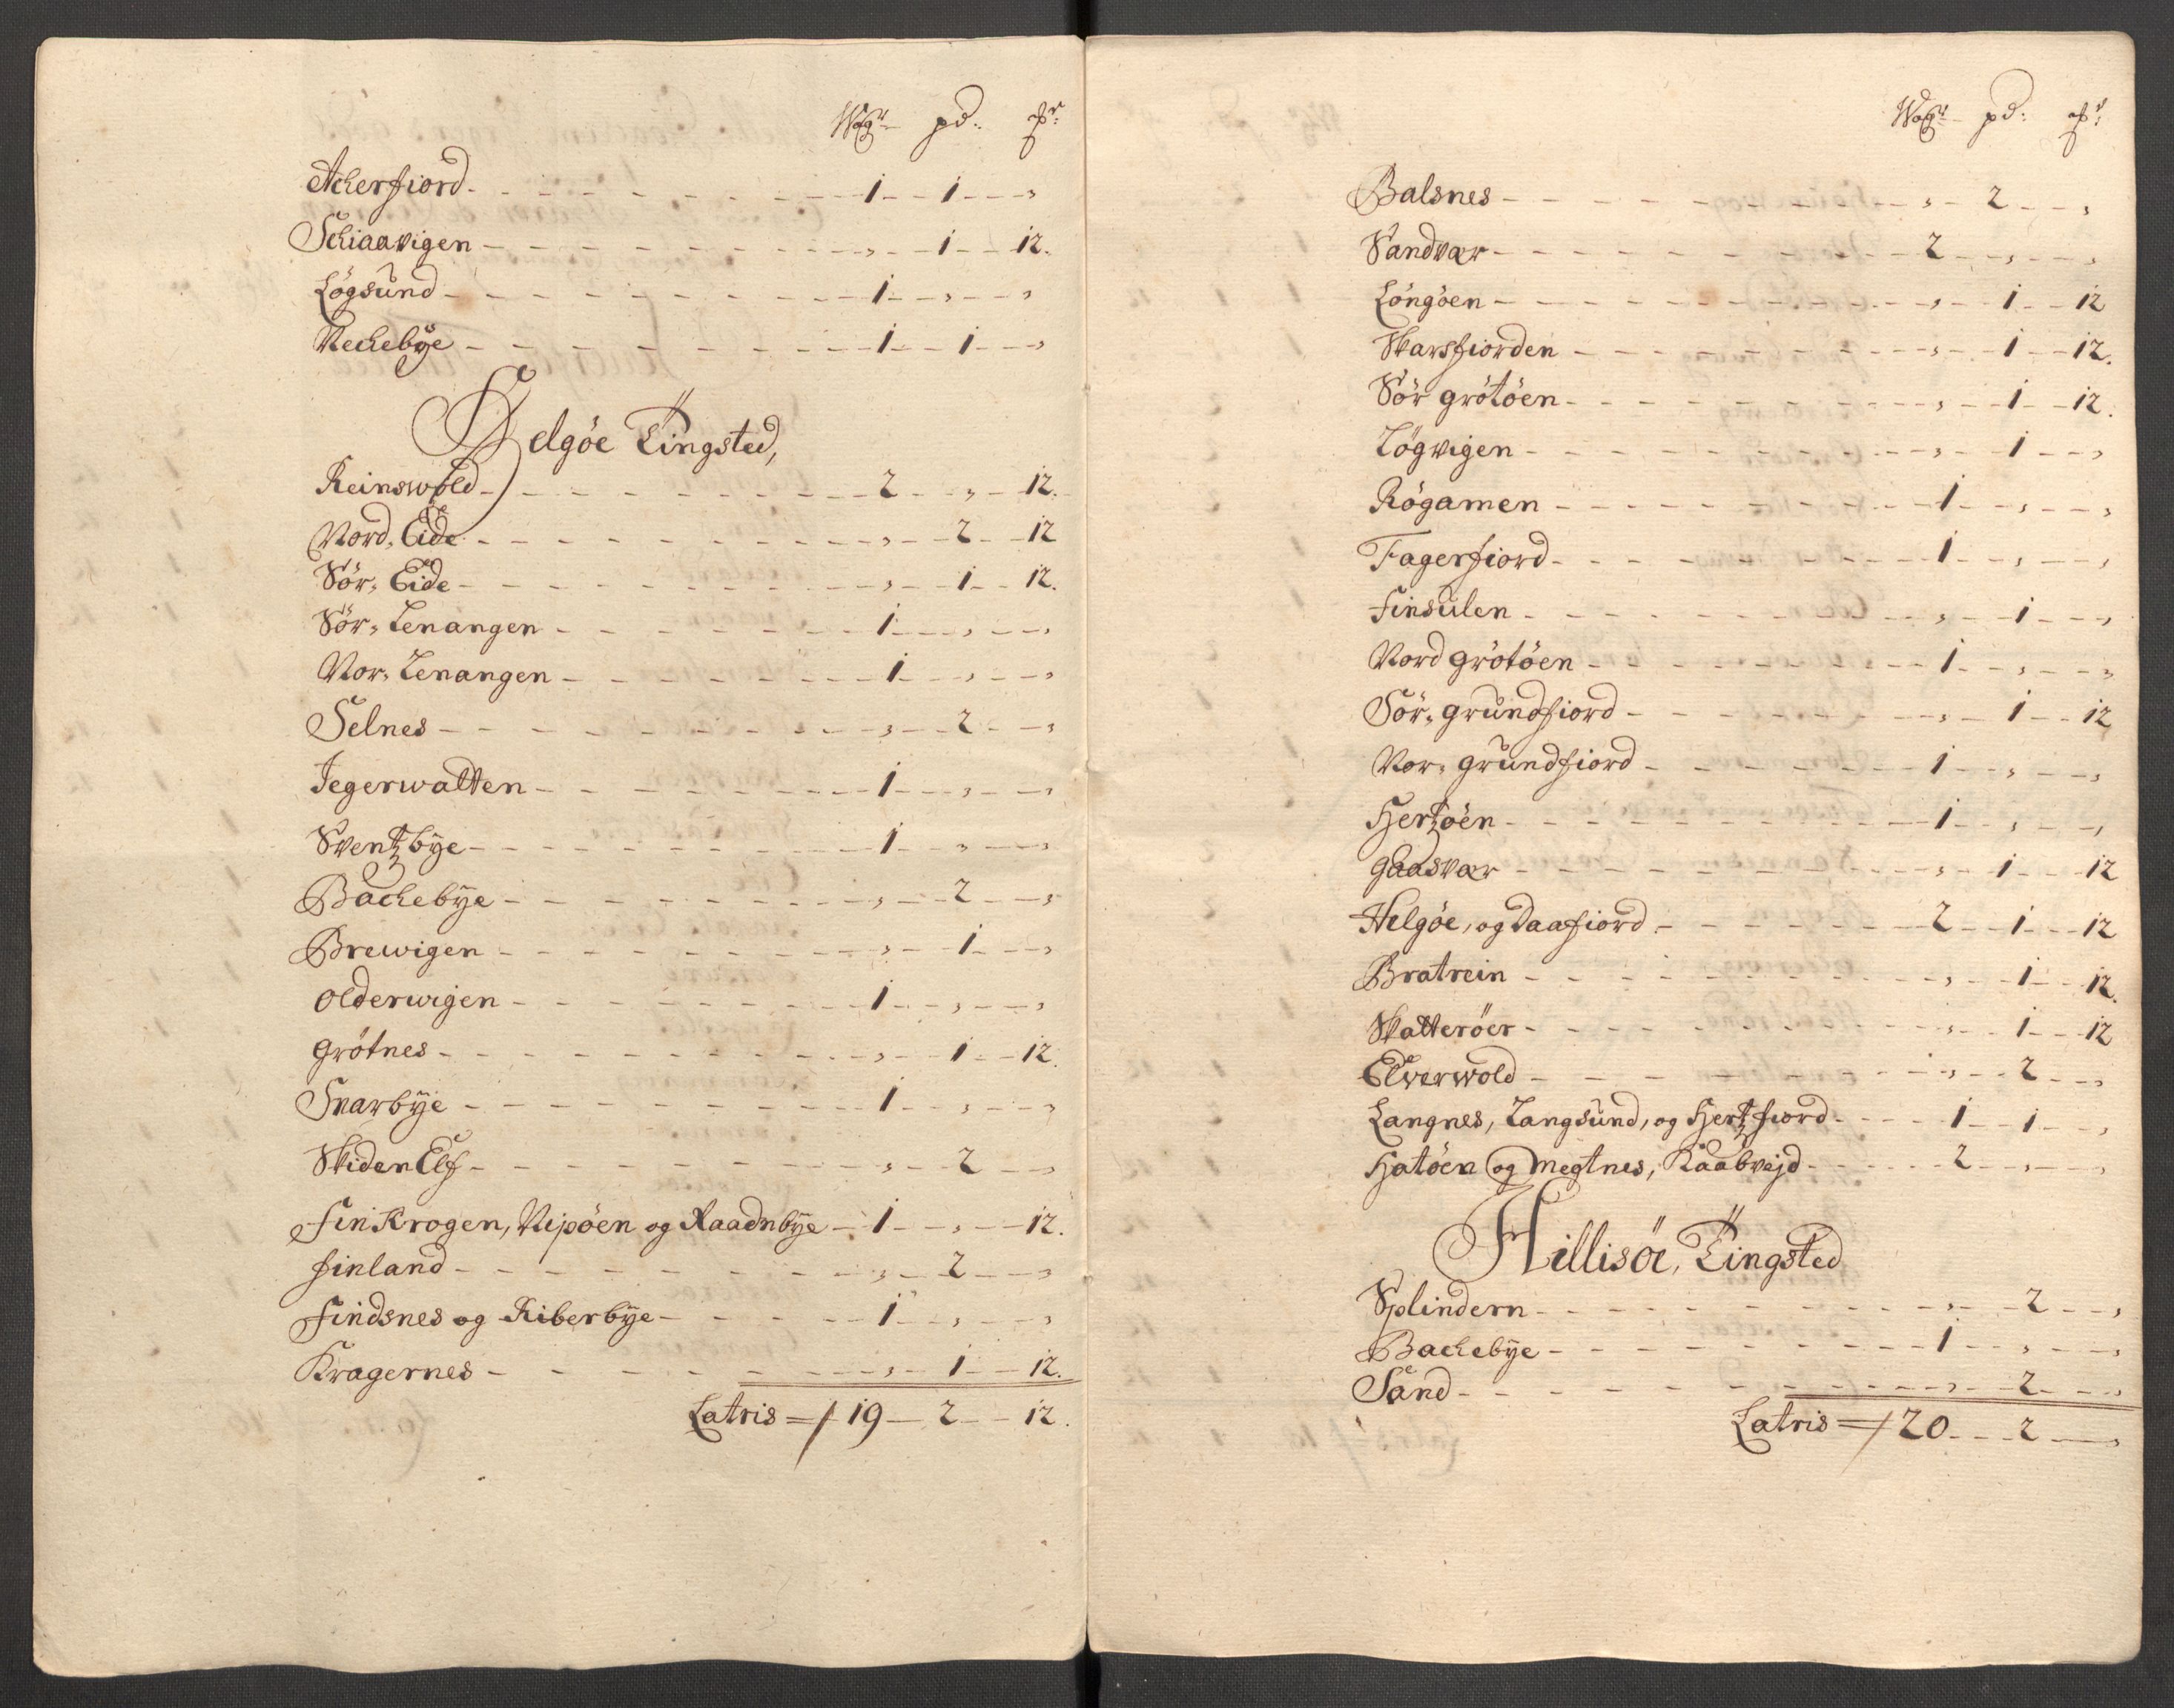 Wogr pd: 
Acherfiord - 1 - 1 - „
Schiaavigen - „ - 1 - 12.
Løgsund - 1 - „ - „
Nechebÿe - 1 - 1 - „
Helgöe Tingsted,
Reinswold - 2 - „ - 12.
Nord, Eide - „ - 2 - 12
Sör, Eide - „ - 1 - 12.
Sör, Lenangen - 1 - „ - „
Nor, Lenangen - 1 - „ - „
Selnes - „ - 2 - „
Jegerwatten - 1 - „ - „
Sventzbÿe - 1 - „ - „
Bachebÿe - „ - 2 - „
Brewigen - „ - 1 - „
Olderwigen - 1 - „ - „
Grötnes - „ - 1 - 12.
Snarbÿe - 1 - „ - „
Skiden Elf - „ - 2 - „
Finkrogen, Vipöen og Raadnbÿe - 1 - „ - 12.
Finland - „ - 2 - „
Findsnes og Riberbÿe - 1 - „ - „
Kragernes - „ - 1 - 12.
Latris = / 19 - 2 - 12.
Wogr pd: 
Balsnes - „ - 2 - „
Sandvær - 2 - „ - „
Löngöen - „ - 1 - 12
Skarsfiorden - „ - 1 - 12.
Sör grötöen - „ - 1 - 12.
Lögvigen - „ - 1 - „
Rögamen - 1 - „ - „
Fagerfiord - 1 - „ - „
Finsulen - „ - 1 - „
Nord grötöen - 1 - „ - „
Sör, grundfiord - „ - 1 - 12
Nor, grundfiord - 1 - „ - „
Hertzöen - 1 - „ - „
Gaasvær - „ - 1 - 12
Helgöe, og Daafiord - 2 - 1 - 12
Bratrein - „ - 1 - 12.
Skatteröer - „ - 1 - 12
Elverwold - „ - 2 - „
Langnes, Langsund, og Hertzfiord - 1 - 1 - „
Hatöen og Megtnes, Kaabvejd - 2 - „ - „
Hillisöe, Tingsted
Splindern - „ - 2 - „
Bachebÿe - 1 - „ - „
Sand - „ - 2 - „
Latris = / 20 - 2 - „